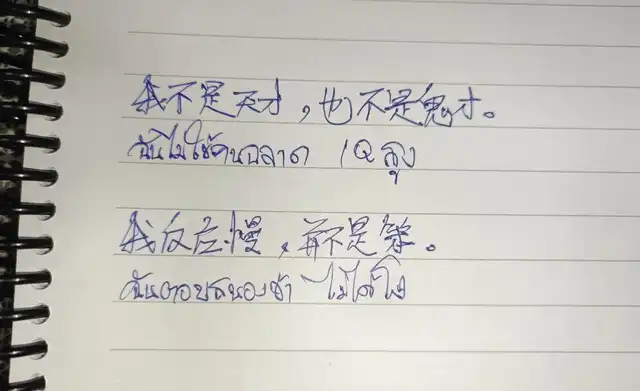 我不是天才，也不是鬼才。
ฉันไม่ใช้คนฉลาด IQ สูง
我反应慢，并不是笨。
ฉันตอบสนองช้า ไม่ได้โง่